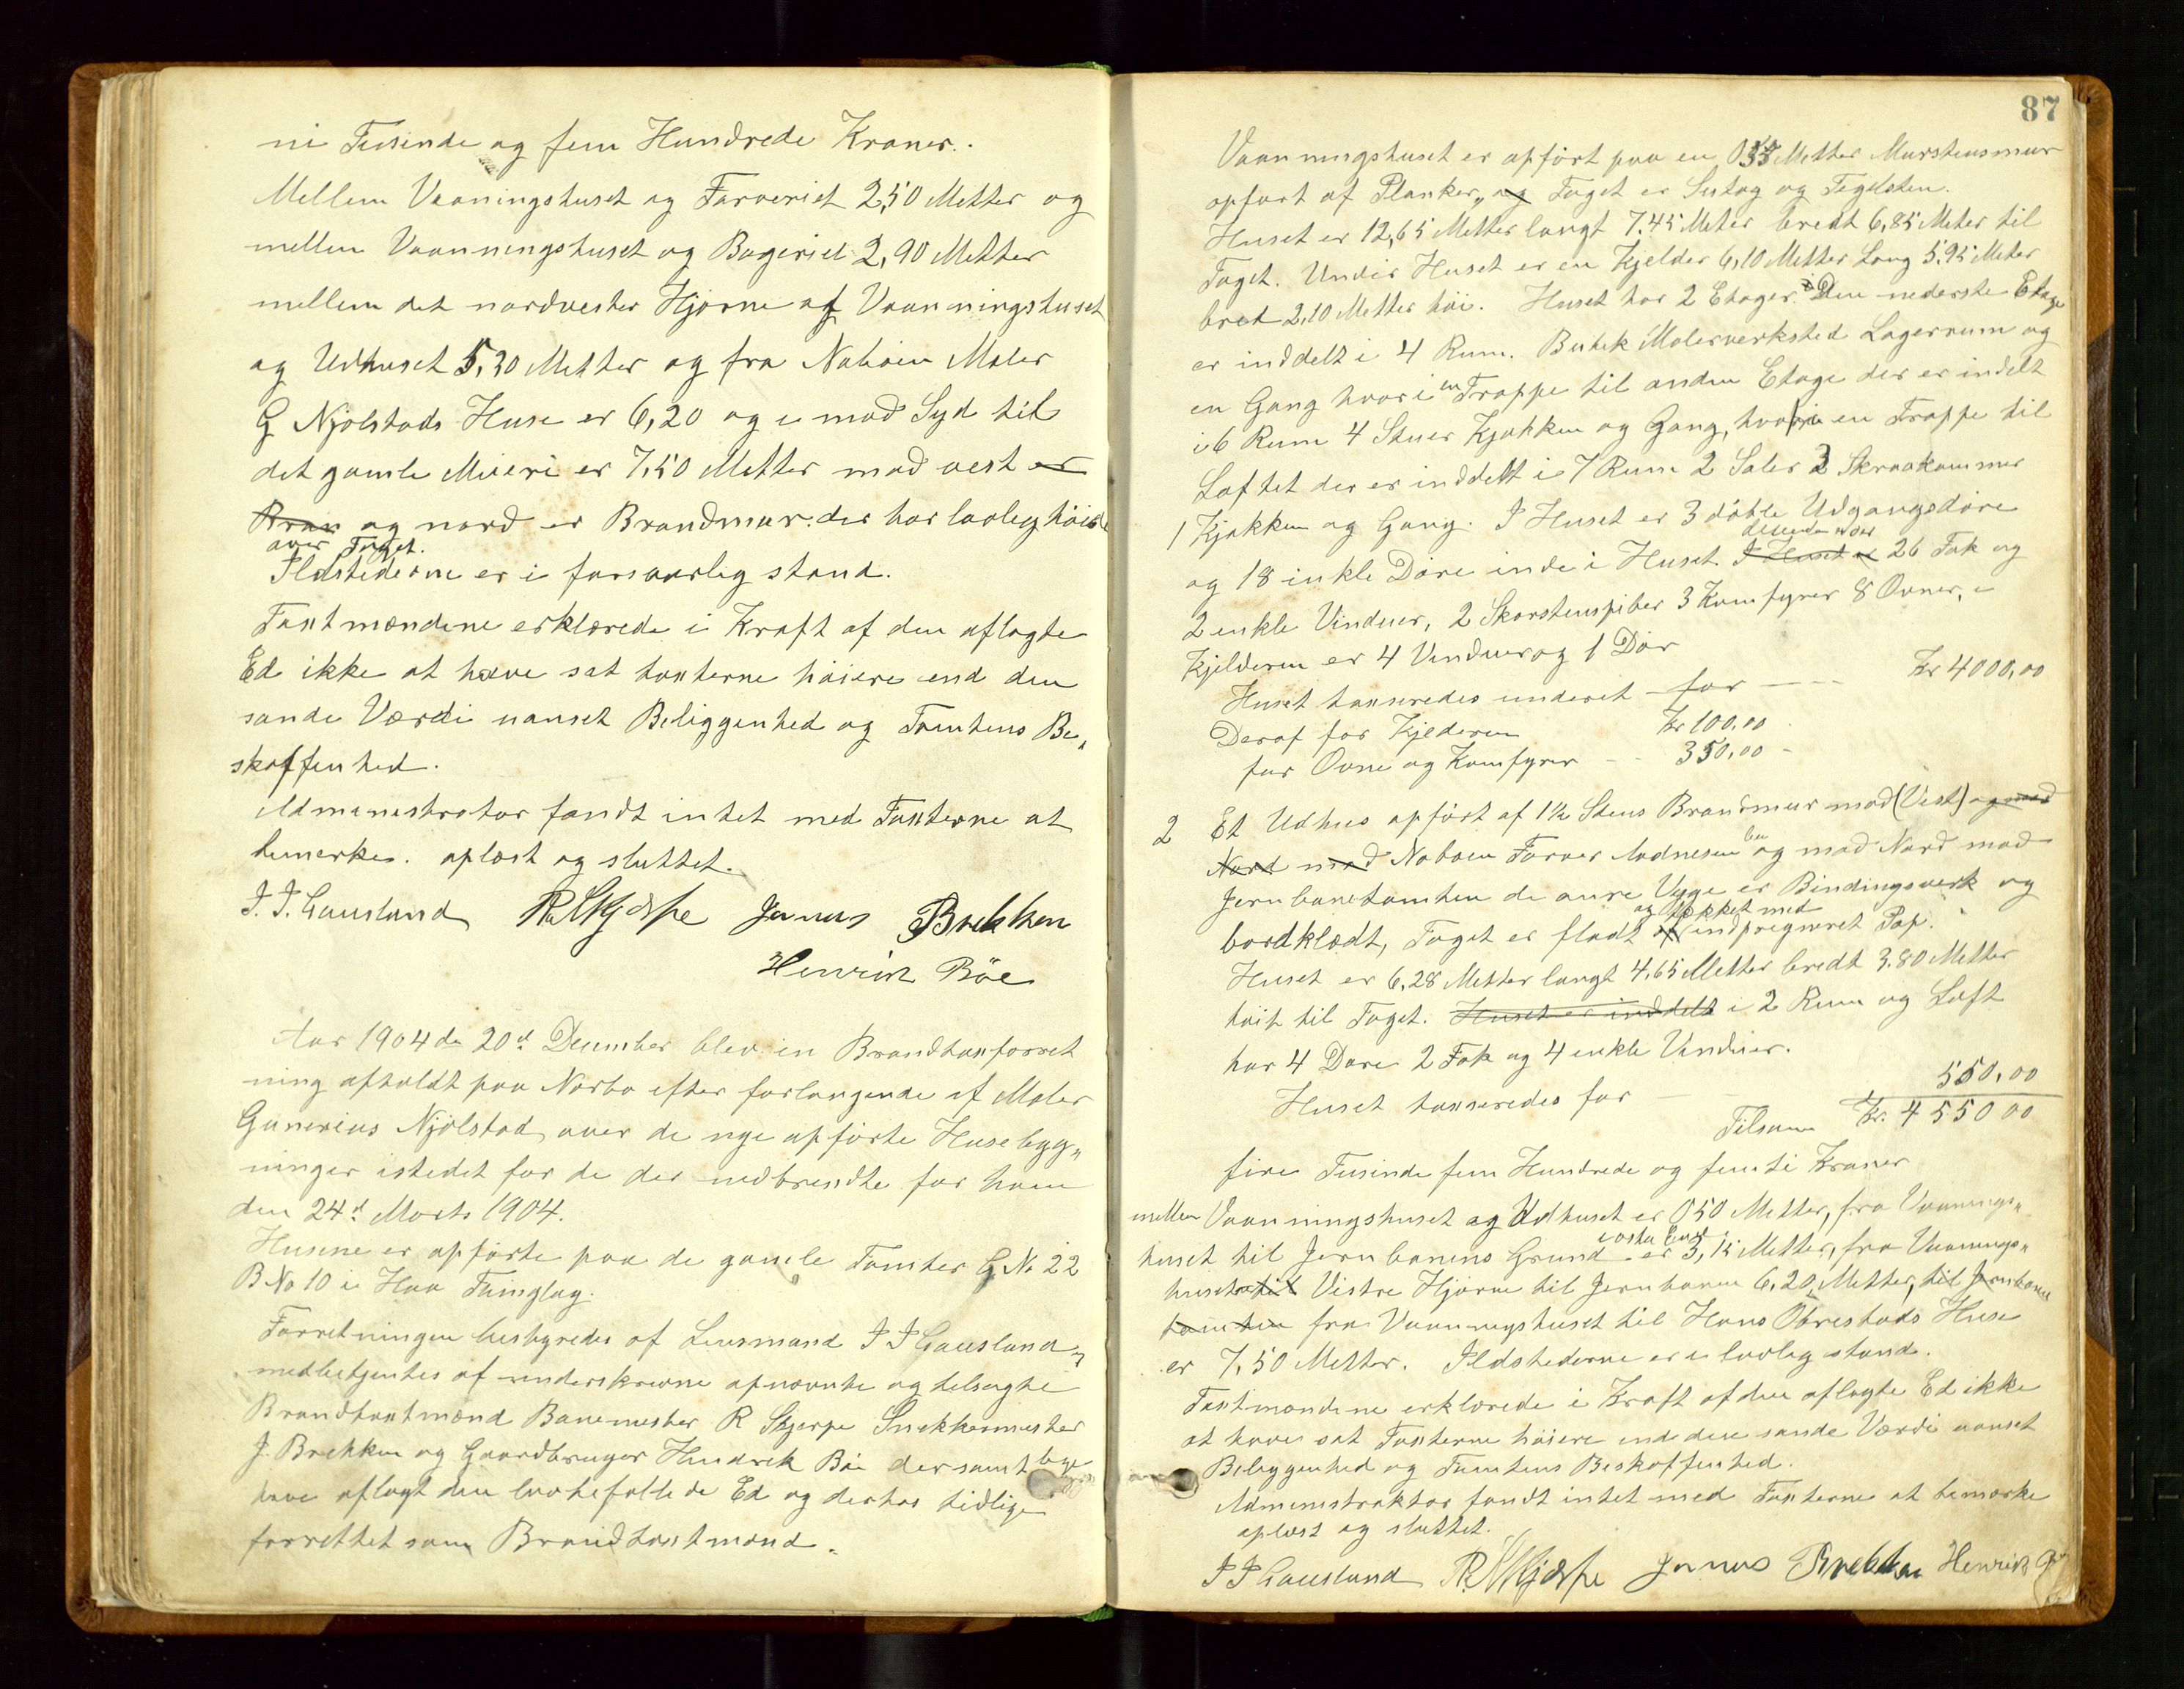 ni Tusinde og fem Hundrede Kroner.
Mellem Vaaningshuset og Farveriet 2,50 Metter og
mellem Vaanningshuset og Bageriet 2,90 Metter
mellem det nordvester Hjørne af Vaanningshuset
og Udhuset 5,30 Metter og fra Naboen Maler
G Njølstads Huse er 6,20 og i mod Syd til
det gamle Mieri er 7,50 Metter mod vest er
Bran og nord er Brandmur der har lovlig høide
over Taget.
Ildstederne er i forsvarlig stand.
Taxtmændene erklærede i Kraft af den aflagte
Ed ikke at have sat taxterne høiere end den
sande Værdi uanset Beliggenhed og Tomtens Be„
skaffenhed.
Administrator fandt intet med Taxterne at
bemerke. oplæst og sluttet.
J. J. Gausland R Skjerpe Jonas Brekken
Henrik Böe
Aar 1904 de 20d December blev en Brandtaxforret
ning afholdt paa Nærbø efter forlangende af Maler
Gunerius Njølstad over de nye opførte Husebyg„
ninger istedet for de der nedbrendte for ham
den 24d Marts 1904.
Husene er opførte paa de gamle Tomter G No 22
B No 10 i Haa Thinglag.
Forretningen bestyredes af Lensmand J J Gausland„
medbetjentes af underskrevne opnævnte og tilsagte
Brandtaxtmænd Banemester R Skjerpe Snekkermester
J. Brekken og Gaardbruger Hendrek Böe der samtlige
have aflagt den lovbefallede Ed og derhos tidligere
forrettet som Brandtaxtmænd.
87
Vaanningshuset er opført paa en 0,55 Metter Murstensmur
opført af Planker, og Taget er Sutag og Tegelsten.
Huset er 12,65 Metter langt 7.45 Meter bredt 6,85 Meter til
Taget. Under Huset er en Kjelder 6,10 Metter Lang 5.95 Meter
bred 2.10 Metter høi. Huset har 2 Etager. Den nederste Etage
er inddelt i 4 Rum. Butik Malerverksted Lagerrum og
en Gang hvori en Trappe til anden Etage der er indelt
i 6 Rum 4 Stuer Kjøkken og Gang, hvori en Trappe til
Loftet der er inddelt i 7 Rum 2 Saler 3 Skraakammer
1 Kjøkken og Gang. I Huset er 3 doble Udgangsdøre
og 18 enkle Døre inde i Huset. I Huset er 26 Fak og
2 enkle Vinduer, 2 Skorstenspiber 3 Komfyrer 8 Ovner, i
Kjelderen er 4 Vinduer og 1 Dör
Huset taxseredes underet for Kr 4000,00
Deraf for Kjederen Kr 100,00
for Ovne og Komfyrer 350,00 -
2 Et Udhus opført af 1½ Stens Brandmur mod (Vest) og mod
Nord mod Naboen Farver Aadnesen og mod Nord mod
Jernbanetomten de anre Vegge er Bindingsverk og
og tækket med
bordklædt, Taget er fladt af indpregneret Pap.
Huset er 6,28 Metter langt 4,65 Metter bredt 3.80 Metter
høit til Taget. Huset er inddelt i 2 Rum og Loft
har 4 Døre 2 Fak og 4 enkle Vinduer.
Huset taxseredes for 550,00
Tilsam Kr. 4550 00
fire Tusinde fem Hundrede og femti Kroner
mellem Vaanningshuset og Udhuset er 0 50 Metter, fra Vaanings„
huset til Jernbanens Grund er 3,15 Metter, fra Vaanings„
husets til Vestre Hjørne til Jernbanen 6,20 Metter, til Jernbane
tomten fra Vaanningshuset til Hans Obrestads Huse
er 7,50 Metter. Ildstederne er i lovlig stand.
Taxtmændene erklærede i Kraft af den aflagte Ed ikke
at have sat Taxterne høiere end den sande Værdi uanset
Beliggenhed og Tomtens Beskaffenhed.
Administraktor fandt intet med Taxterne at bemærke
oplæst og sluttet.
J J Gausland R. Skjerpe Jonas Brekken Henrik